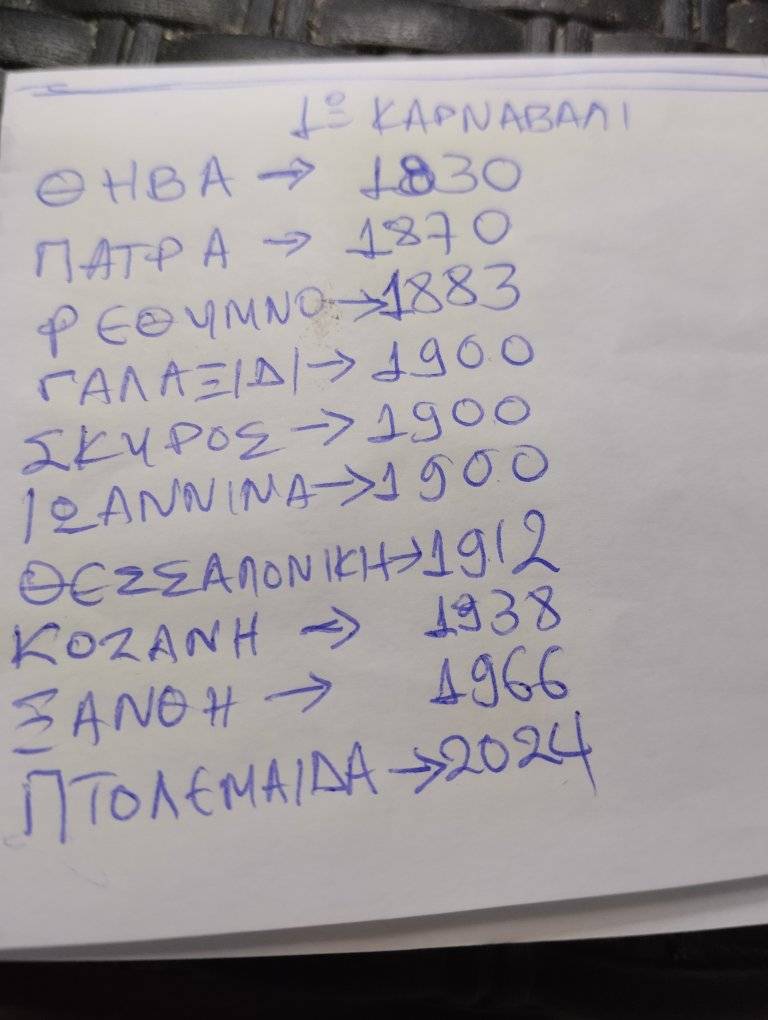 1ο ΚΑΡΝΑΒΑΛΙ
ΘΗΒΑ → 1830
ΠΑΤΡΑ → 1870
ΡΕΘΥΜΝΟ → 1883
ΓΑΛΑΞΙΔΙ → 1900
ΣΚΥΡΟΣ → 1900
ΙΩΑΝΝΙΝΑ → 1900
ΘΕΣΣΑΛΟΝΙΚΗ → 1912
ΚΟΖΑΝΗ → 1938
ΞΑΝΘΗ → 1966
ΠΤΟΛΕΜΑΙΔΑ → 2024